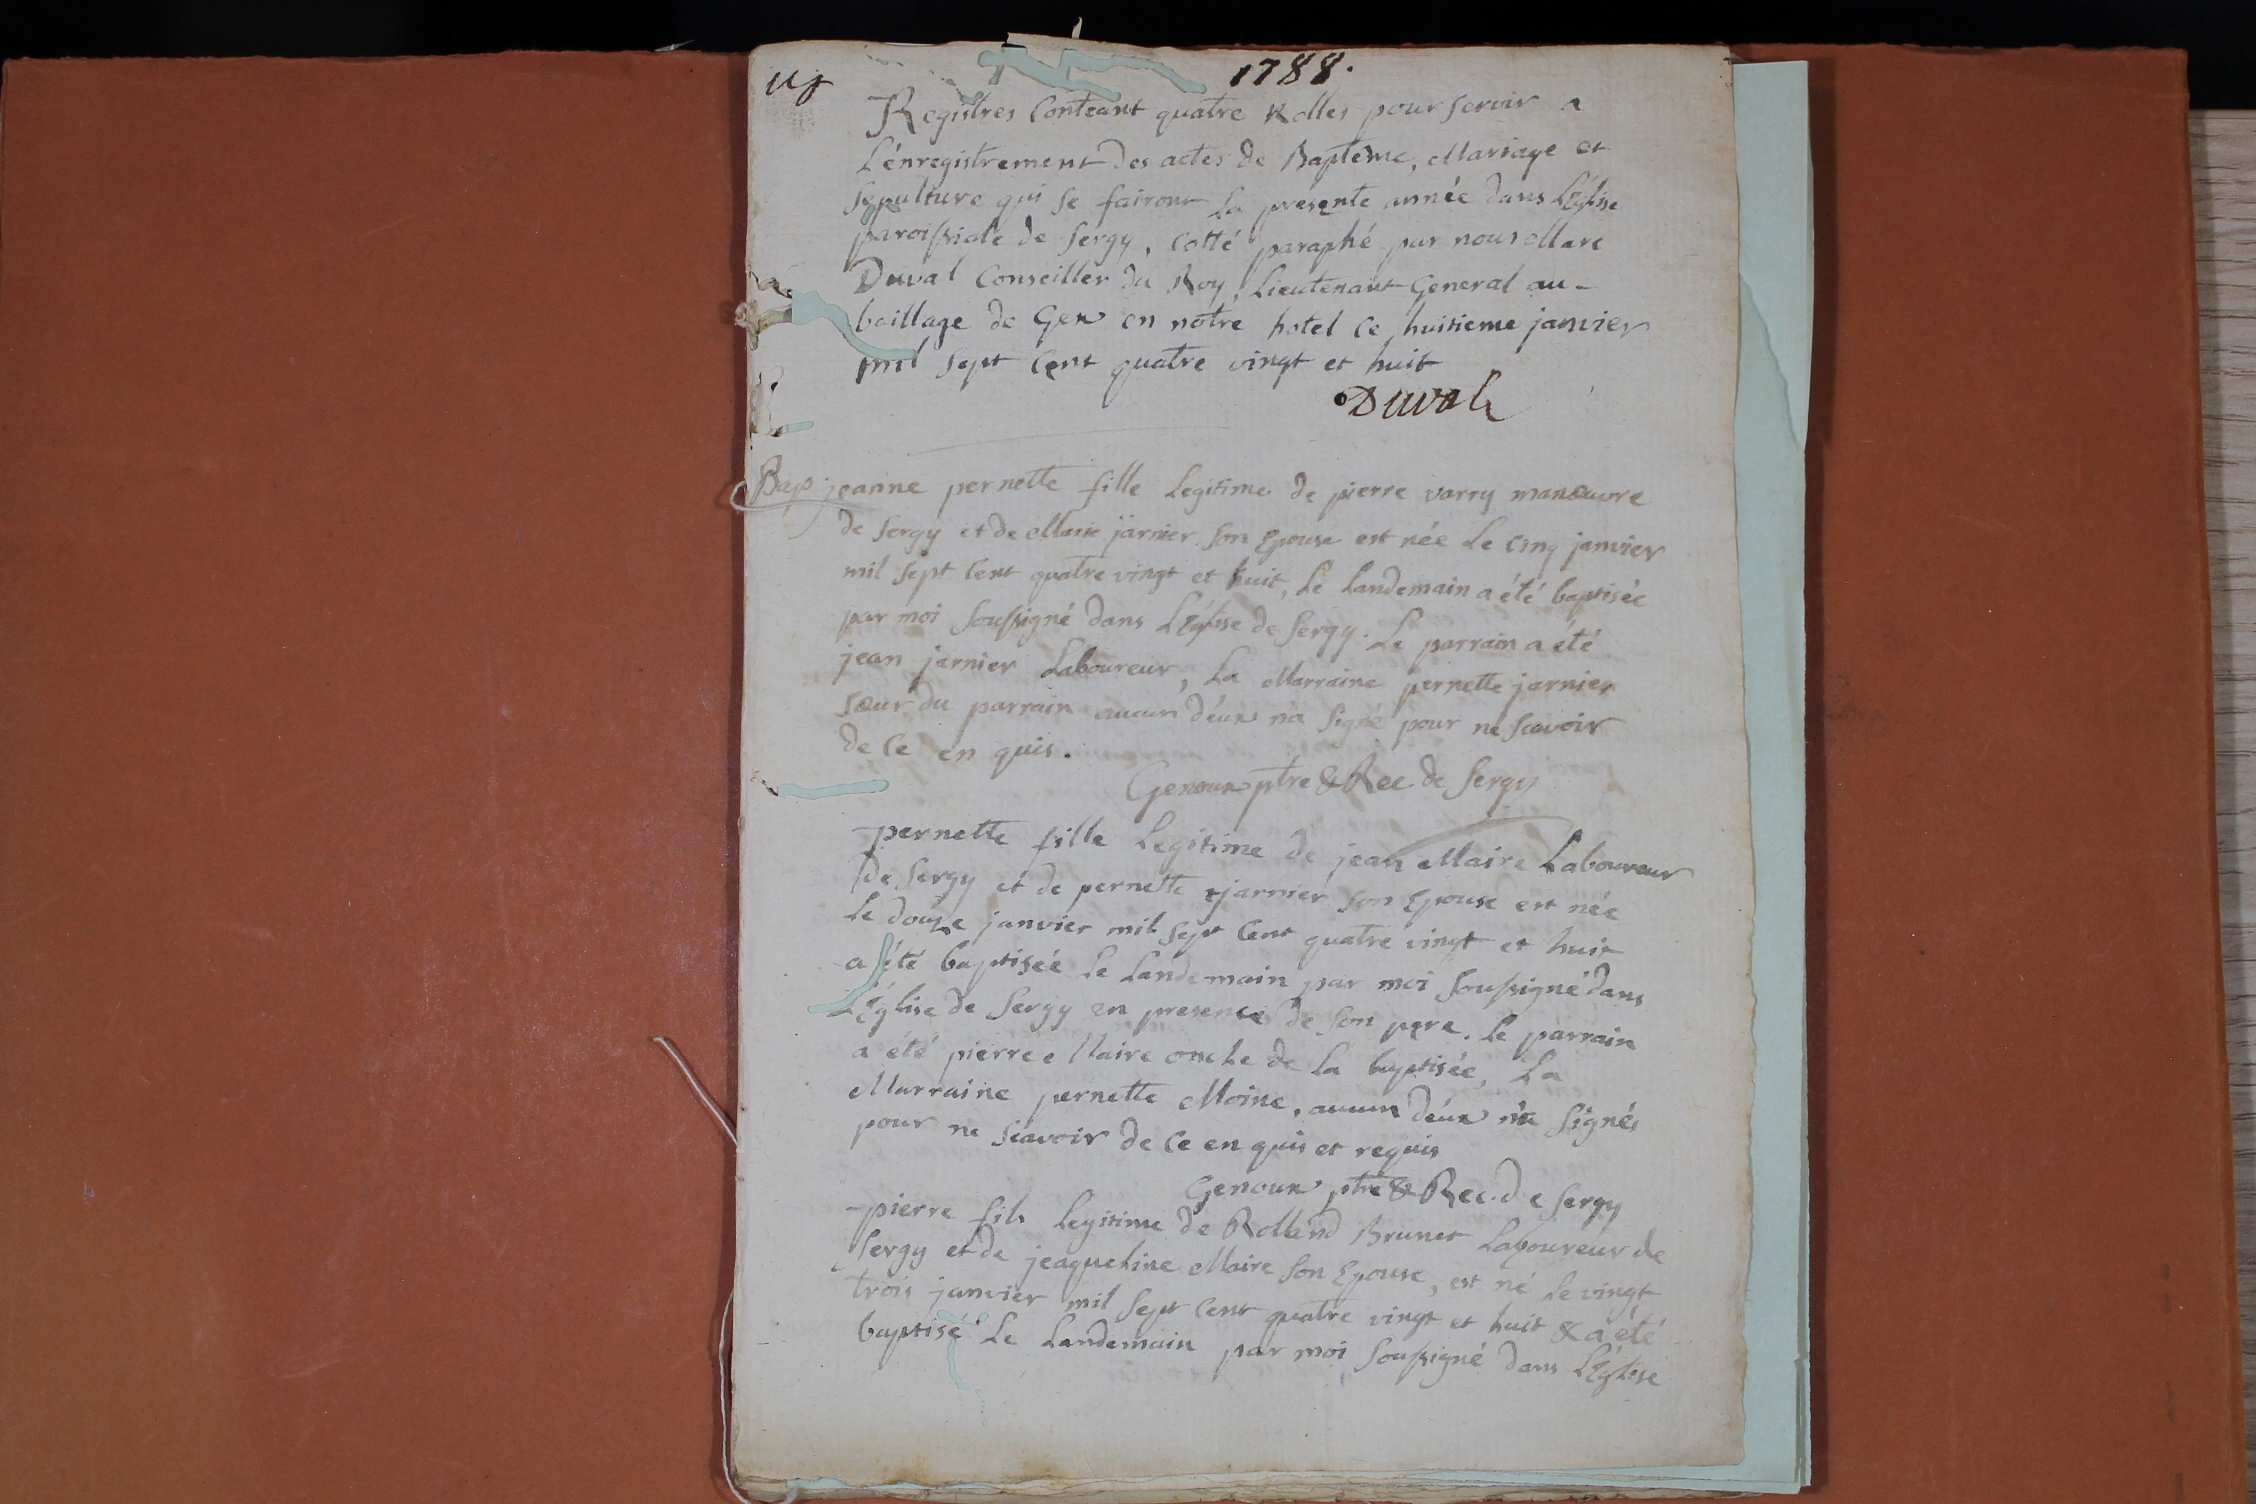 1788.
Registres Conteant quatre Rolles pour servir a
L'énregistrement des actes de Baptême, Mariage et
sépulture qui se fairont La presente année dans L'Eglise
paroissiale de Sergy, Cotté paraphé par nous Marc
Duval Conseiller du Roy, Lieutenant General au-
baillage de Gex en nôtre hotel Ce huitieme janvier
mil sept Cent quatre vingt et huit
Duval
Bap jeanne pernette fille Legitime de pierre varry manœuvre
de Sergy et de Marie jarnier son Epouse est née Le Cinq janvier
mil sept Cent quatre vingt et huit, Le Landemain a été baptisée
par moi soussigné dans L'Eglise de Sergy. Le parrain a été
jean jarnier Laboureur, La Marraine pernette jarnier
sœur du parrain aucun d'éux n'a signé pour ne scavoir
de Ce en quis.
Genoux ptre & Rec. de Sergy
pernette fille Legitime de jean Maire Laboureur
de Sergy et de pernette jarnier son Epouse est née
Le douze janvier mil sept Cent quatre vingt et huit
a été baptisée Le Landemain par moi soussigné dans
L'Église de Sergy en presence de son pere. Le parrain
a été pierre Maire oncle de La baptisée, La
Marraine pernette Moine, aucun d'éux n'a signés
pour ne scavoir de Ce en quis et requis
Genoux ptre & Rec. de Sergy
pierre fils Legitime de Rolland Brunet Laboureur de
Sergy et de jeaqueline Maire son Epouse, est né Le vingt
trois janvier mil sept Cent quatre vingt et huit & a été
baptisé Le Landemain par moi soussigné dans L'Église